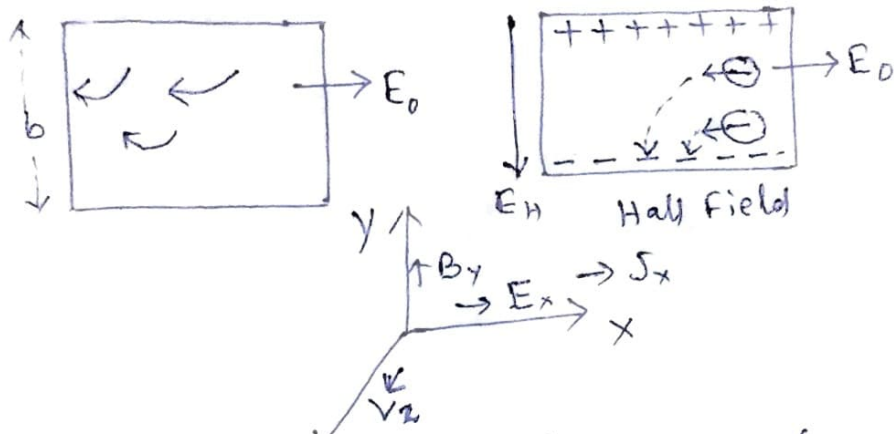 + + + + + + +
E₀
E₀
b
- - - - - - -
E_H Hall Field
Y
B_Y
→ E_x → J_x
X
V_z